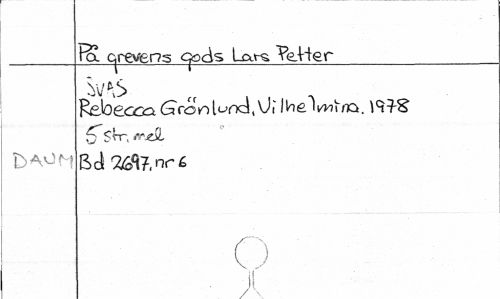 På grevens gods Lars Petter
SVAS
Rebecca Grönlund, Vilhelmina. 1978
5 str. mel
DAUM Bd 2697, nr 6